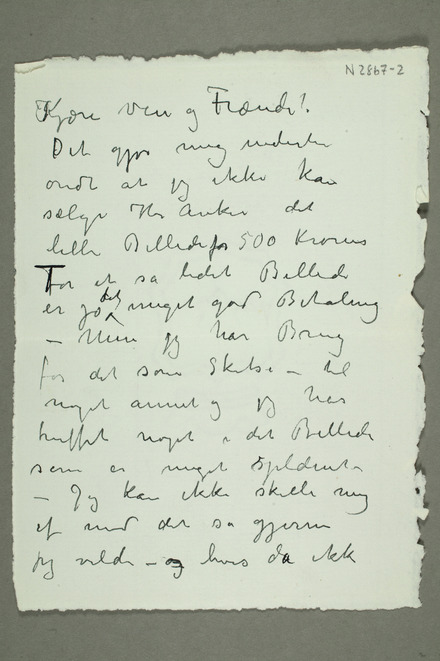 N 2867-2
Kjære Ven og Frænde!
Det gjør mig inderlig
ondt at jeg ikke kan
sælge Hr Anker det
lille Billede for 500 Kroner
For et så lidet Billede
er jo det meget god Betaling
– Men jeg har Brug
for det som Skitse – til
noget annet og jeg har
truffet noget i det Billede
som er meget sjeldent
– Jeg kan ikke skille mig
af med det så gjerne
jeg vilde – og hvis da ikk